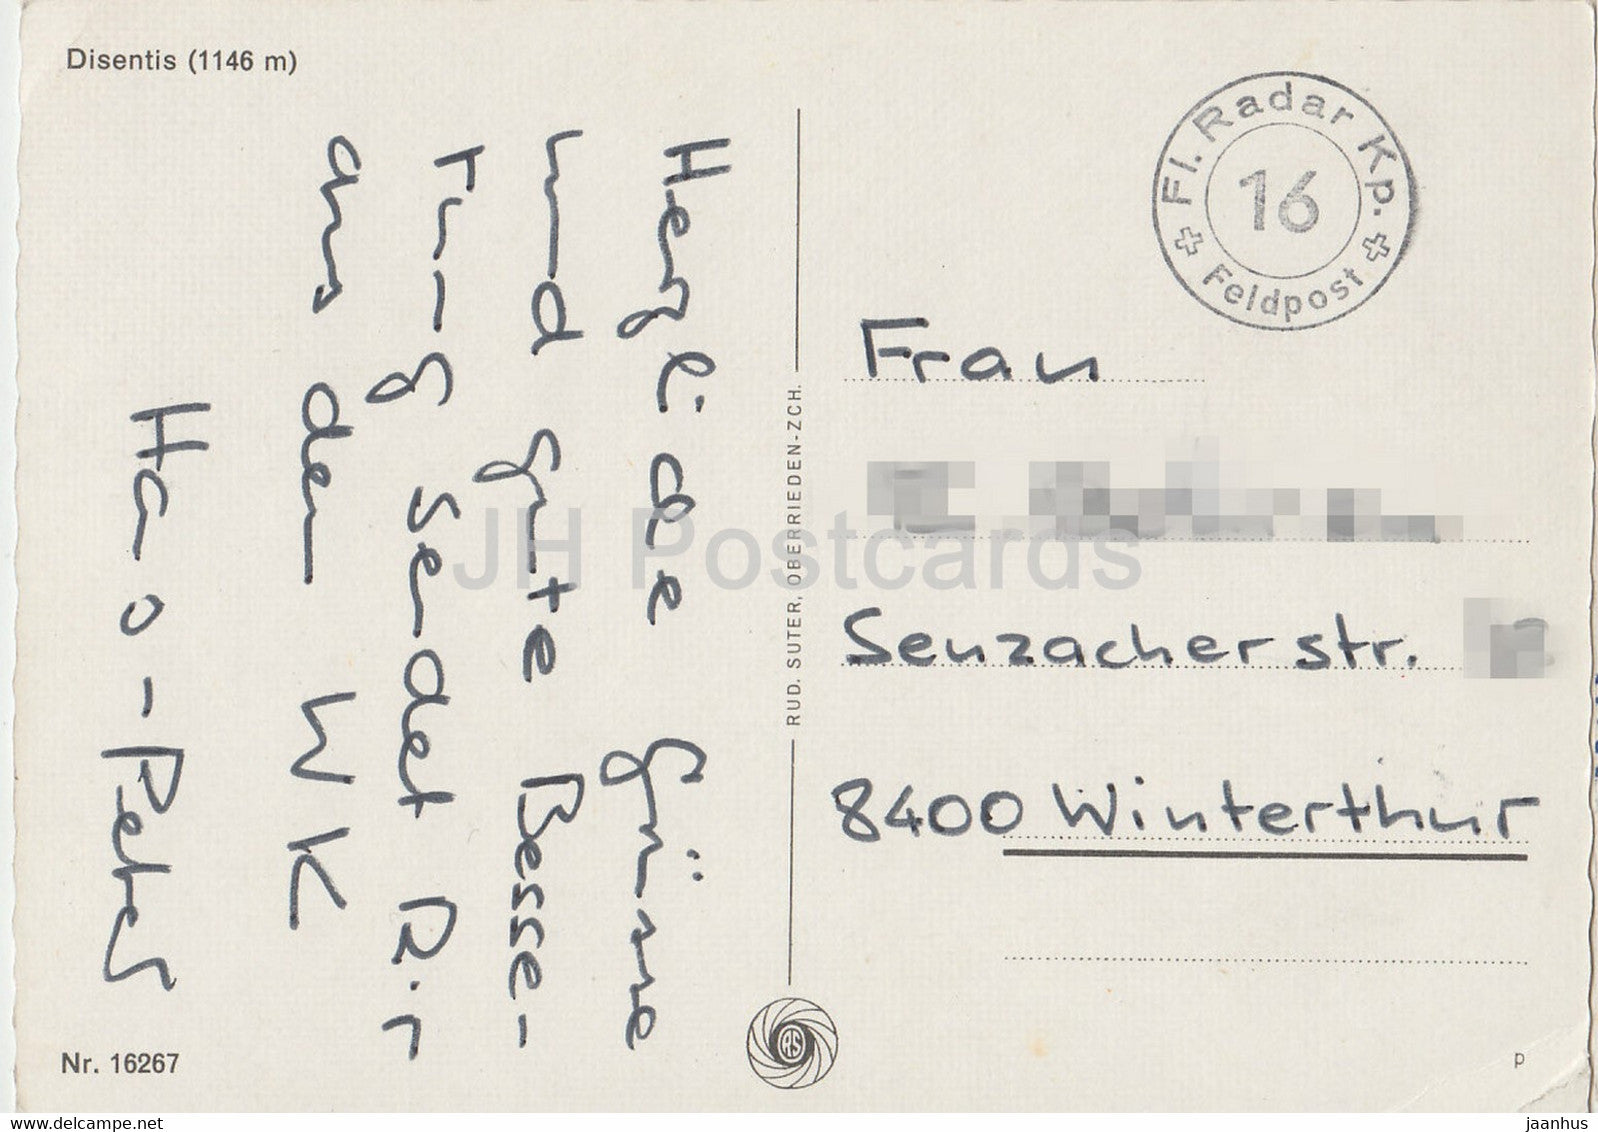 Disentis (1146 m)
Herzliche Grüsse
und gute Besse-
rung sendet Dir
aus dem WK
Hans-Peter
Nr. 16267
RUD. SUTER, OBERRIEDEN-ZCH.
Fl. Radar Kp.
16
Feldpost
Frau
Seuzacherstr.
8400 Winterthur
RS
p
JH Postcards
www.delcampe.net
jaanhus